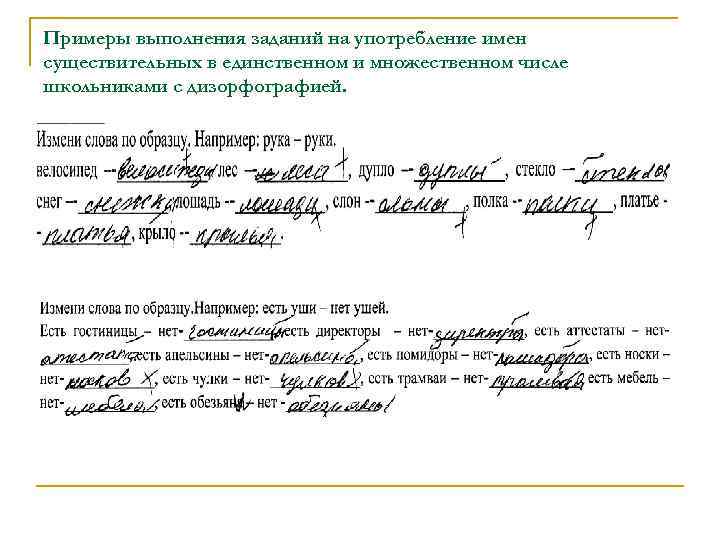 Примеры выполнения заданий на употребление имен
существительных в единственном и множественном числе
школьниками с дизорфографией.
Измени слова по образцу. Например: рука – руки.
велосипед -- велосипеды лес -- леса, дупло -- дуплы, стекло --
снег -- снежки, лошадь -- лошади, слон -- слоны, полка -- полки, платье -
- платья, крыло -- крылья.
Измени слова по образцу.Например: есть уши – нет ушей.
Есть гостиницы – нет- есть директоры – нет- есть аттестаты – нет-
есть апельсины – нет- есть помидоры – нет- есть носки –
нет- носков, есть чулки – нет- чулков, есть трамваи – нет- есть мебель –
нет- есть обезьяны – нет -